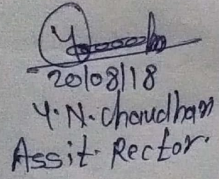 20/08/18
Y.N. Choudhary
Assit. Rector.